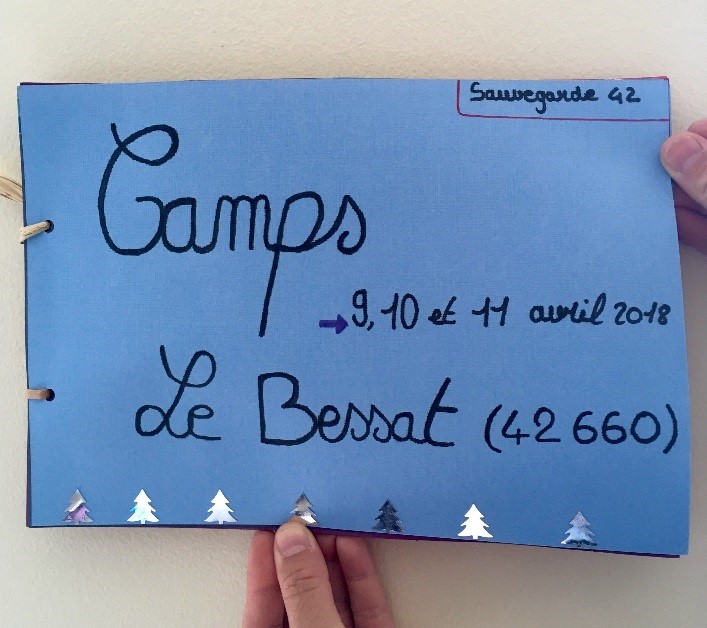 Sauvegarde 42
Camps
→ 9, 10 et 11 avril 2018
Le Bessat (42 660)